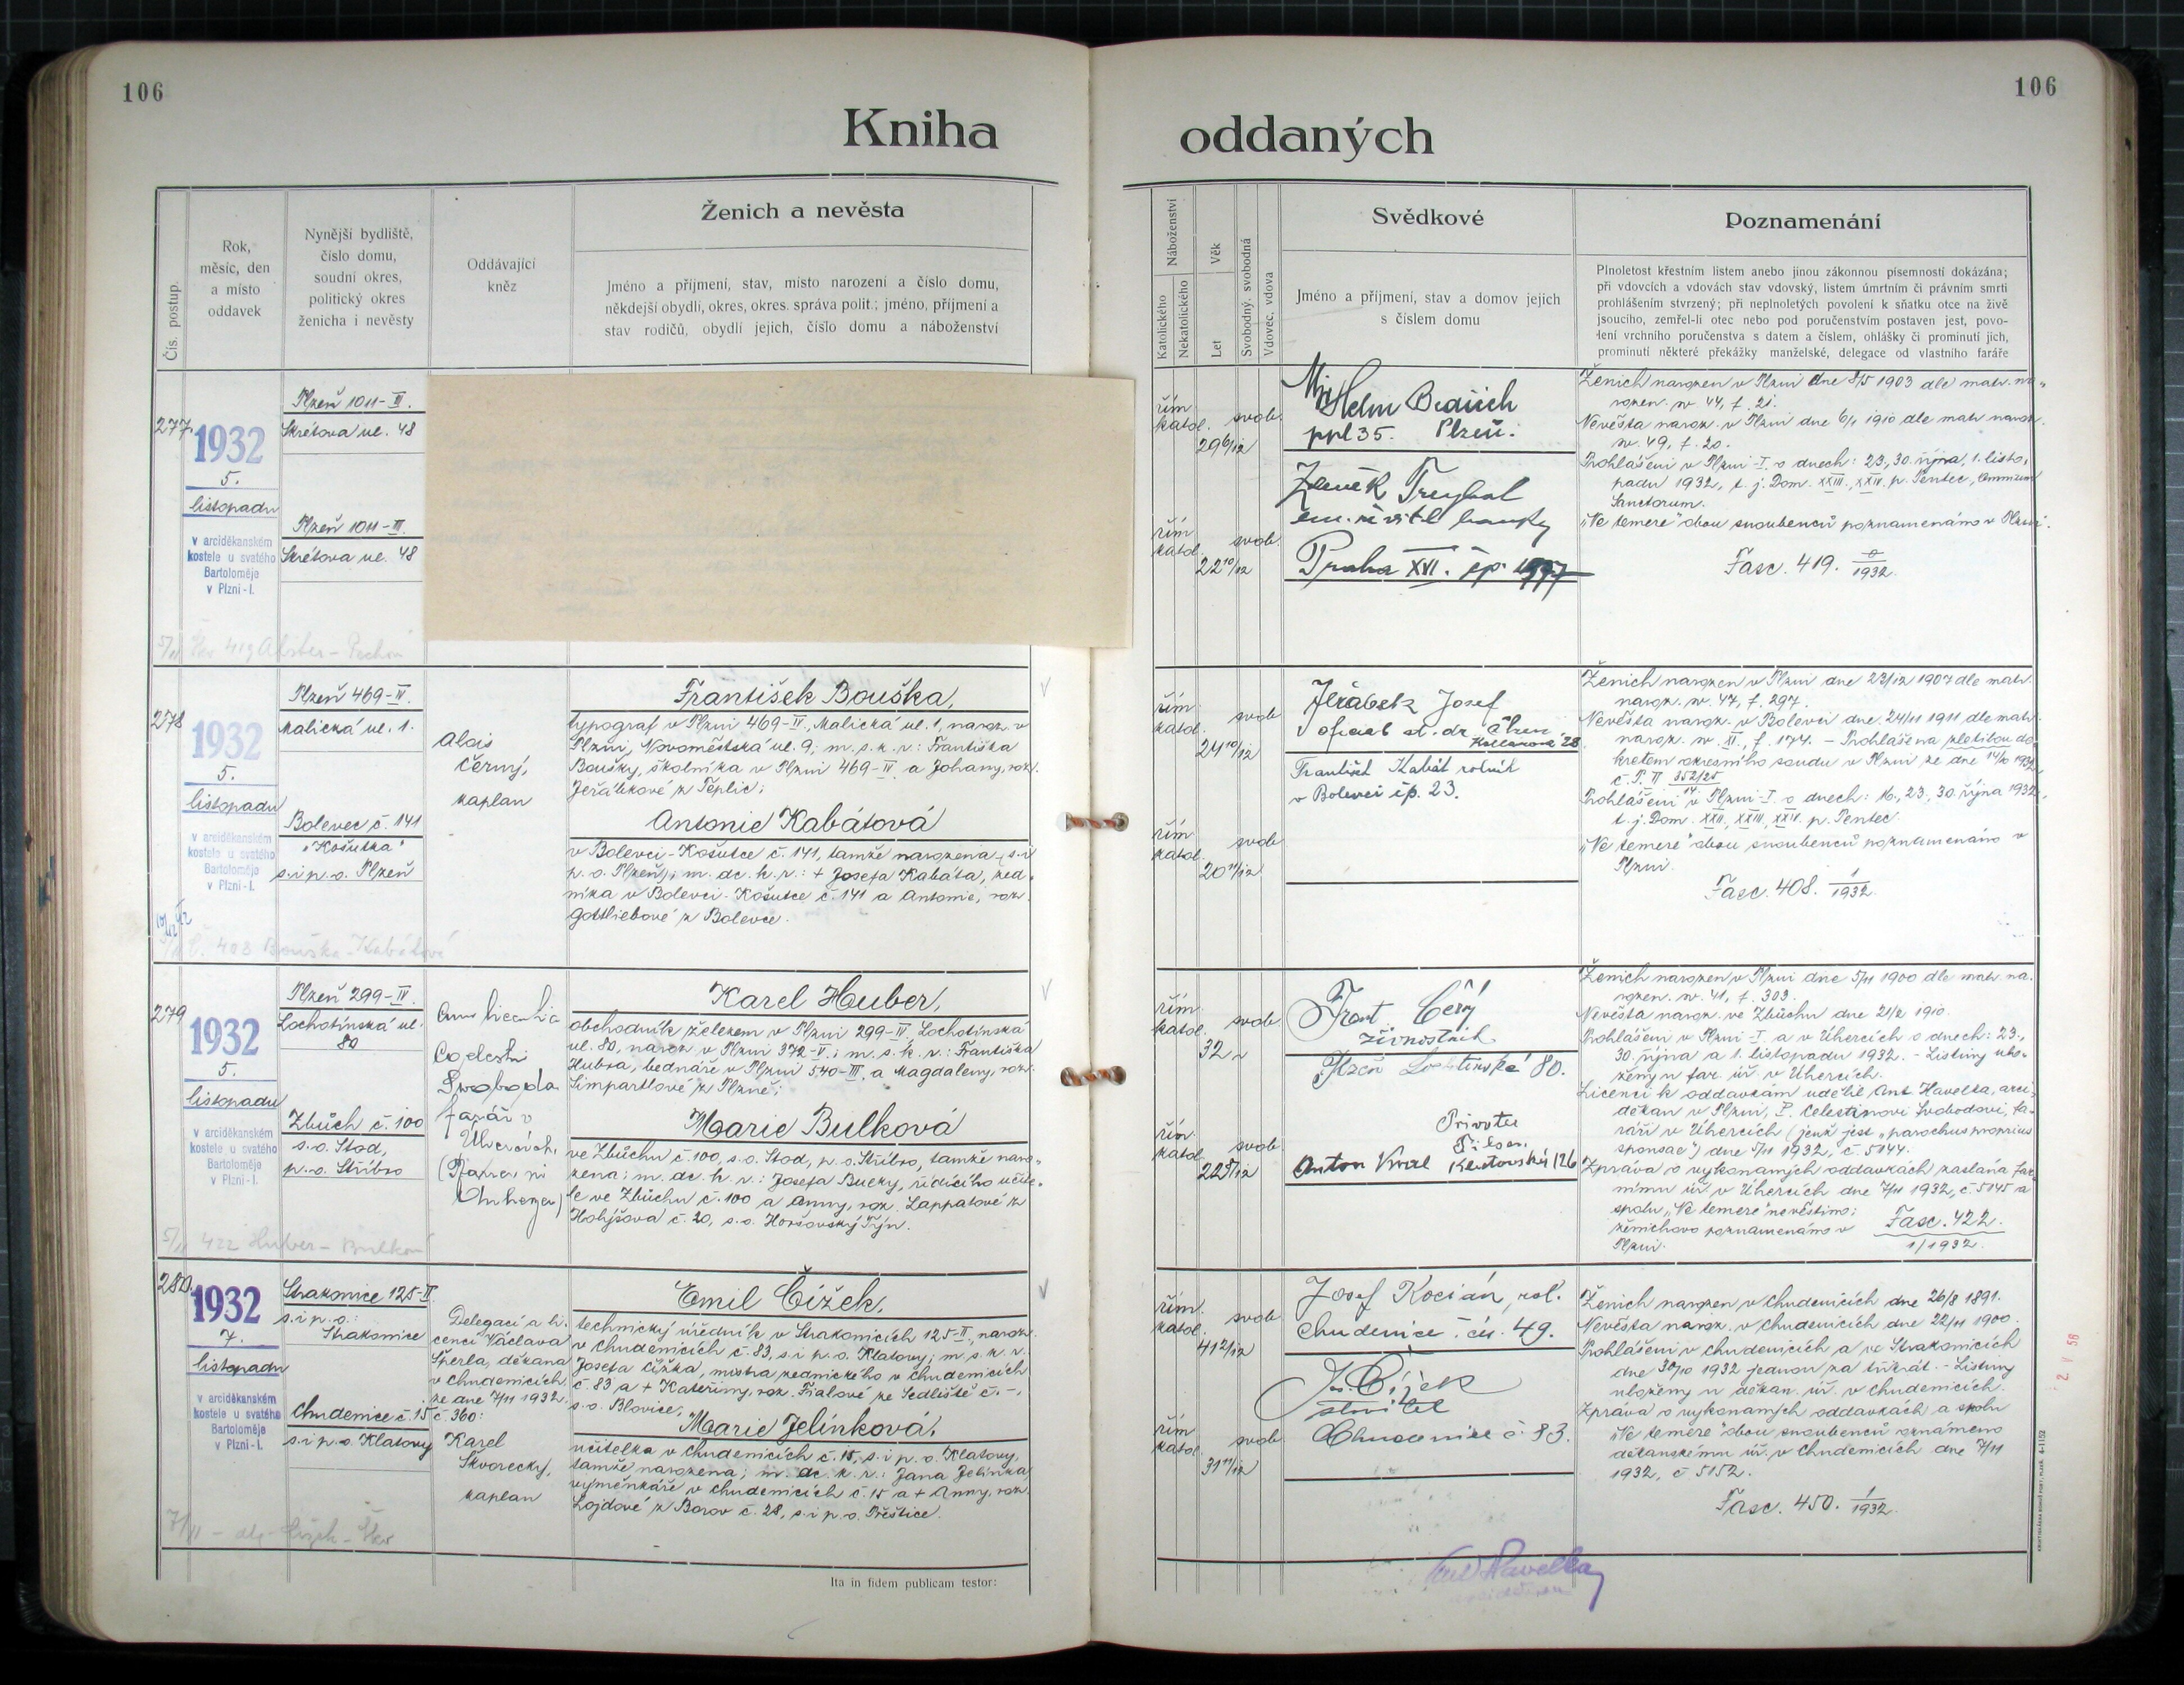 106
106
Kniha
oddaných
Čís. postup.
Rok,
měsíc, den
a místo
oddavek
Nynější bydliště,
číslo domu,
soudní okres,
politický okres
ženicha i nevěsty
Oddávající
kněz
Ženich a nevěsta
Jméno a příjmení, stav, místo narození a číslo domu,
někdejší obydlí, okres, okres. správa polit.; jméno, příjmení a
stav rodičů, obydlí jejich, číslo domu a náboženství
Náboženství
Katolického
Nekatolického
Věk
Let
Svobodný. svobodná
Vdovec. vdova
Svědkové
Jméno a příjmení, stav a domov jejich
s číslem domu
Poznamenání
Plnoletost křestním listem anebo jinou zákonnou písemností dokázána;
při vdovcích a vdovách stav vdovský, listem úmrtním či právním smrti
prohlášením stvrzený; při neplnoletých povolení k sňatku otce na živě
jsoucího, zemřel-li otec nebo pod poručenstvím postaven jest, povo-
lení vrchního poručenstva s datem a číslem, ohlášky či prominutí jich,
prominutí některé překážky manželské, delegace od vlastního faráře
277.
1932
5.
listopadu
v arciděkanském
kostele u svatého
Bartoloměje
v Plzni-I.
Plzeň 1011-III.
Skrétova ul. 48
Plzeň 1011-III.
Skrétova ul. 48
řím.
katol.
svob.
29 6/12
řím.
katol.
svob.
22 10/12
ppl 35. Plzeň.
Zdeněk Treybal
Praha XVI. čp.
Ženich narozen v Plzni dne 8/5 1903 dle matr. na-
rozen. sv. 44, f. 21.
Nevěsta naroz. v Plzni dne 6/1 1910 dle matr. naroz.
sv. 49, f. 20.
Prohlášeni v Plzni-I. o dnech: 23., 30. října, 1. listo-
padu 1932, t. j. Dom. XXIII., XXIV. p. Pentec., Omnium
Sanctorum.
„Ne temere“ obou snoubenců poznamenáno v Plzni.
Fasc. 419.
1932.
278
1932
5.
listopadu
v arciděkanském
kostele u svatého
Bartoloměje
v Plzni-I.
Plzeň 469-IV.
Malická ul. 1.
Bolevec č. 141
„Košutka“
s. i p. o. Plzeň
Alois
Černý,
kaplan
František Bouška,
typograf v Plzni 469-IV, Malická ul. 1, naroz. v
Plzni, Novoměstská ul. 9; m. s. k. r.: Františka
Boušky, školníka v Plzni 469-IV a Johany, roz.
Jeřábkové z Teplic;
Antonie Kabátová
v Bolevci-Košutce č. 141, tamže narozena (s. i
p. o. Plzeň); m. dc. k. r.: + Josefa Kabáta, zed-
níka v Bolevci-Košutce č. 141 a Antonie, roz.
Gottliebové z Bolevce.
403 Bouška-Kabátová
řím.
katol.
svob.
24 10/12
řím.
katol.
svob.
20 11/12
Jeřábek Josef
28
František Kabát rolník
v Bolevci čp. 23.
Ženich narozen v Plzni dne 23/12 1907 dle matr.
naroz. sv. 47, f. 297.
Nevěsta naroz. v Bolevci dne 24/11 1911 dle matr.
naroz. sv. XI., f. 174. – Prohlášena zletilou de-
kretem okresního soudu v Plzni ze dne 14/10 1932
Prohlášeni v Plzni-I. o dnech: 16., 23., 30. října 1932,
t. j. Dom. XXII., XXIII., XXIV. p. Pentec.
„Ne temere“ obou snoubenců poznamenáno v
Plzni.
Fasc. 408. 1/1932.
279
1932
5.
listopadu
v arciděkanském
kostele u svatého
Bartoloměje
v Plzni-I.
Plzeň 299-IV.
Lochotínská ul.
80
Zbůch č. 100
s. o. Stod,
p. o. Stříbro
Swoboda
farář v
Karel Huber,
obchodník železem v Plzni 299-IV, Lochotínská
ul. 80, naroz. v Plzni 372-V.; m. s. k. r.: Františka
Hubra, bednáře v Plzni 540-III, a Magdaleny, roz.
Simpartlové z Plzně;
Marie Bulková
ve Zbůchu č. 100, s. o. Stod, p. o. Stříbro, tamže naro-
zena; m. dc. k. r.: Josefa Bulky, řídícího učite-
le ve Zbůchu č. 100 a Anny, roz. Lappatové z
Holýšova č. 20, s. o. Horšovský Týn.
422 Huber-Bulková
řím.
katol.
svob.
32
řím.
katol.
svob.
22 8/12
Frant. Černý
živnostník
Plzeň Lochotínská 80.
Privatier
Pilsen
Anton Kral
Ženich narozen v Plzni dne 5/11 1900 dle matr. na-
rozen. sv. 41, f. 303.
Nevěsta naroz. ve Zbůchu dne 21/2 1910.
Prohlášeni v Plzni-I. a v Úhercích o dnech: 23.,
30. října a 1. listopadu 1932. – Listiny ulo-
ženy u far. úř. v Úhercích.
Licenci k oddavkám udělil Ant. Havelka, arci-
děkan v Plzni, P. Celestinovi Svobodovi, fa-
ráři v Úhercích (jenž jest „parochus proprius
sponsae“) dne 5/11 1932, č. 5144.
Zpráva o vykonaných oddavkách zaslána far-
nímu úř. v Úhercích dne 7/11 1932, č. 5145 a
spolu „Ne temere“ nevěstino;
ženichovo poznamenáno v
Plzni.
Fasc. 422.
1/1932.
280.
1932
7.
listopadu
v arciděkanském
kostele u svatého
Bartoloměje
v Plzni-I.
Strakonice 125-II.
s. i p. o.:
Strakonice
Chudenice č. 15
s. i p. o. Klatovy
Delegací a li-
cencí Václava
Šperla, děkana
v Chudenicích
ze dne 7/11 1932.
č. 360:
Karel
Škvorecký,
kaplan
Emil Čížek,
technický úředník v Strakonicích 125-II, naroz.
v Chudenicích č. 83, s. i p. o. Klatovy; m. s. k. r.
Josefa Čížka, mistra zednického v Chudenicích
č. 83 a + Kateřiny, roz. Fialové ze Sedliště č. –,
s. o. Blovice;
Marie Jelínková,
učitelka v Chudenicích č. 15, s. i p. o. Klatovy,
tamže narozena; m. dc. k. r.: Jana Jelínka,
výměnkáře v Chudenicích č. 15 a + Anny, roz.
Lojdové z Borov č. 28, s. i p. o. Přeštice.
řím.
katol.
svob.
41 2/12
řím.
katol.
svob.
31 11/12
Josef Kocián, rol.
Chudenice čís. 49.
Jos. Čížek
stavitel
Chudenice č. 83.
Ženich narozen v Chudenicích dne 26/8 1891.
Nevěsta naroz. v Chudenicích dne 22/11 1900.
Prohlášeni v Chudenicích a ve Strakonicích
dne 30/10 1932 jednou za třikrát. – Listiny
uloženy u děkan. úř. v Chudenicích.
Zpráva o vykonaných oddavkách a spolu
„Ne temere“ obou snoubenců oznámeno
děkanskému úř. v Chudenicích dne 7/11
1932, č. 5152.
Fasc. 450. 1/1932.
2 V 58
Ita in fidem publicam testor:
Ant. Havelka